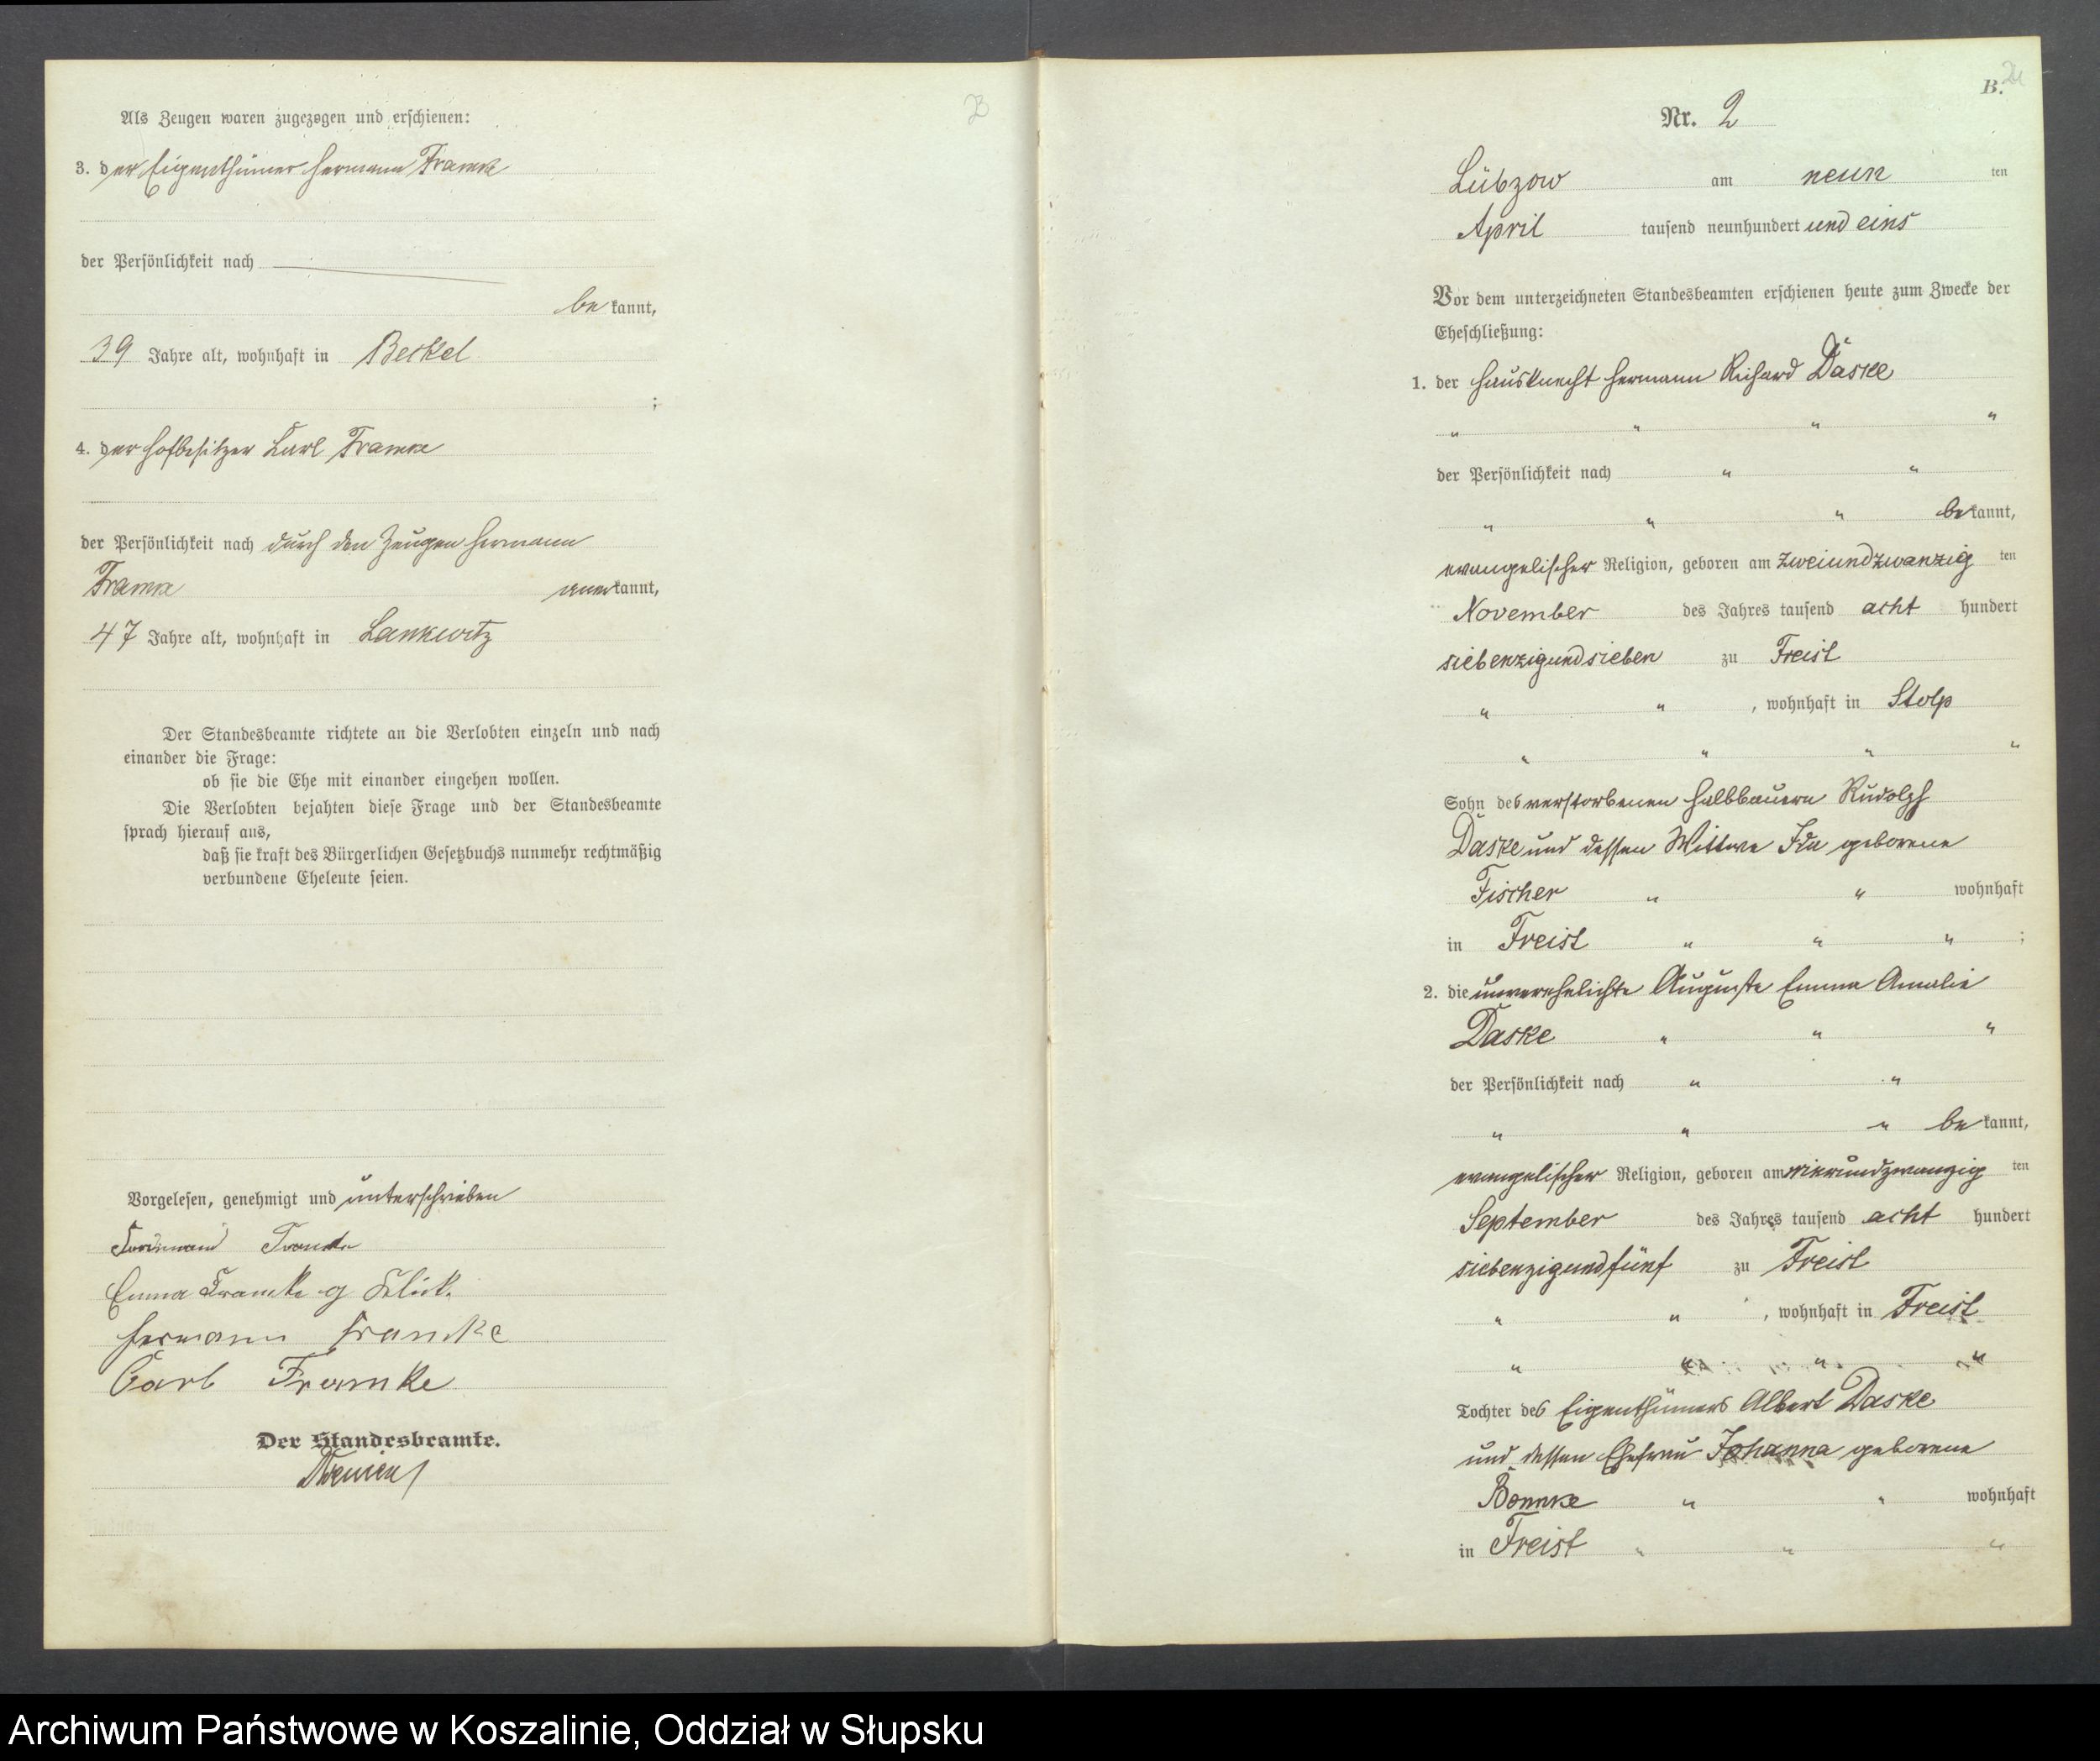 23
Als Zeugen waren zugezogen und erschienen:
3. der Eigenthümer Hermann Framke
der Persönlichkeit nach
be kannt,
39 Jahre alt, wohnhaft in Beckel
;
4. der Hofbesitzer Carl Framke
der Persönlichkeit nach durch den Zeugen Hermann
Framke anerkannt,
47 Jahre alt, wohnhaft in Lankwitz
Der Standesbeamte richtete an die Verlobten einzeln und nach
einander die Frage:
ob sie die Ehe mit einander eingehen wollen.
Die Verlobten bejahten diese Frage und der Standesbeamte
sprach hierauf aus,
daß sie kraft des Bürgerlichen Gesetzbuchs nunmehr rechtmäßig
verbundene Eheleute seien.
Vorgelesen, genehmigt und unterschrieben
Ferdinand Framke
Emma Framke g
Hermann Framke
Carl Framke
Der Standesbeamte.
B. 24
Nr. 2
Lübzow am neun ten
April tausend neunhundert und eins
Vor dem unterzeichneten Standesbeamten erschienen heute zum Zwecke der
Eheschließung:
1. der Hausknecht Hermann Richard Daske
" " " "
der Persönlichkeit nach " "
" " " bekannt,
evangelischer Religion, geboren am zweiundzwanzig ten
November des Jahres tausend acht hundert
siebenzigundsieben zu Freist
" " , wohnhaft in Stolp
" " " "
Sohn des verstorbenen Halbbauern Rudolph
Daske und dessen Wittwe Ida geborene
Fischer " " wohnhaft
in Freist " " " ;
2. die unverehelichte Auguste Emma Amalie
Daske " " "
der Persönlichkeit nach " "
" " " be kannt,
evangelischer Religion, geboren am vierundzwanzig ten
September des Jahres tausend acht hundert
siebenzigundfünf zu Freist
" " , wohnhaft in Freist
" " " "
Tochter des Eigenthümers Albert Daske
und dessen Ehefrau Johanna geborene
Bönnke " " wohnhaft
in Freist " " "
Archiwum Państwowe w Koszalinie, Oddział w Słupsku